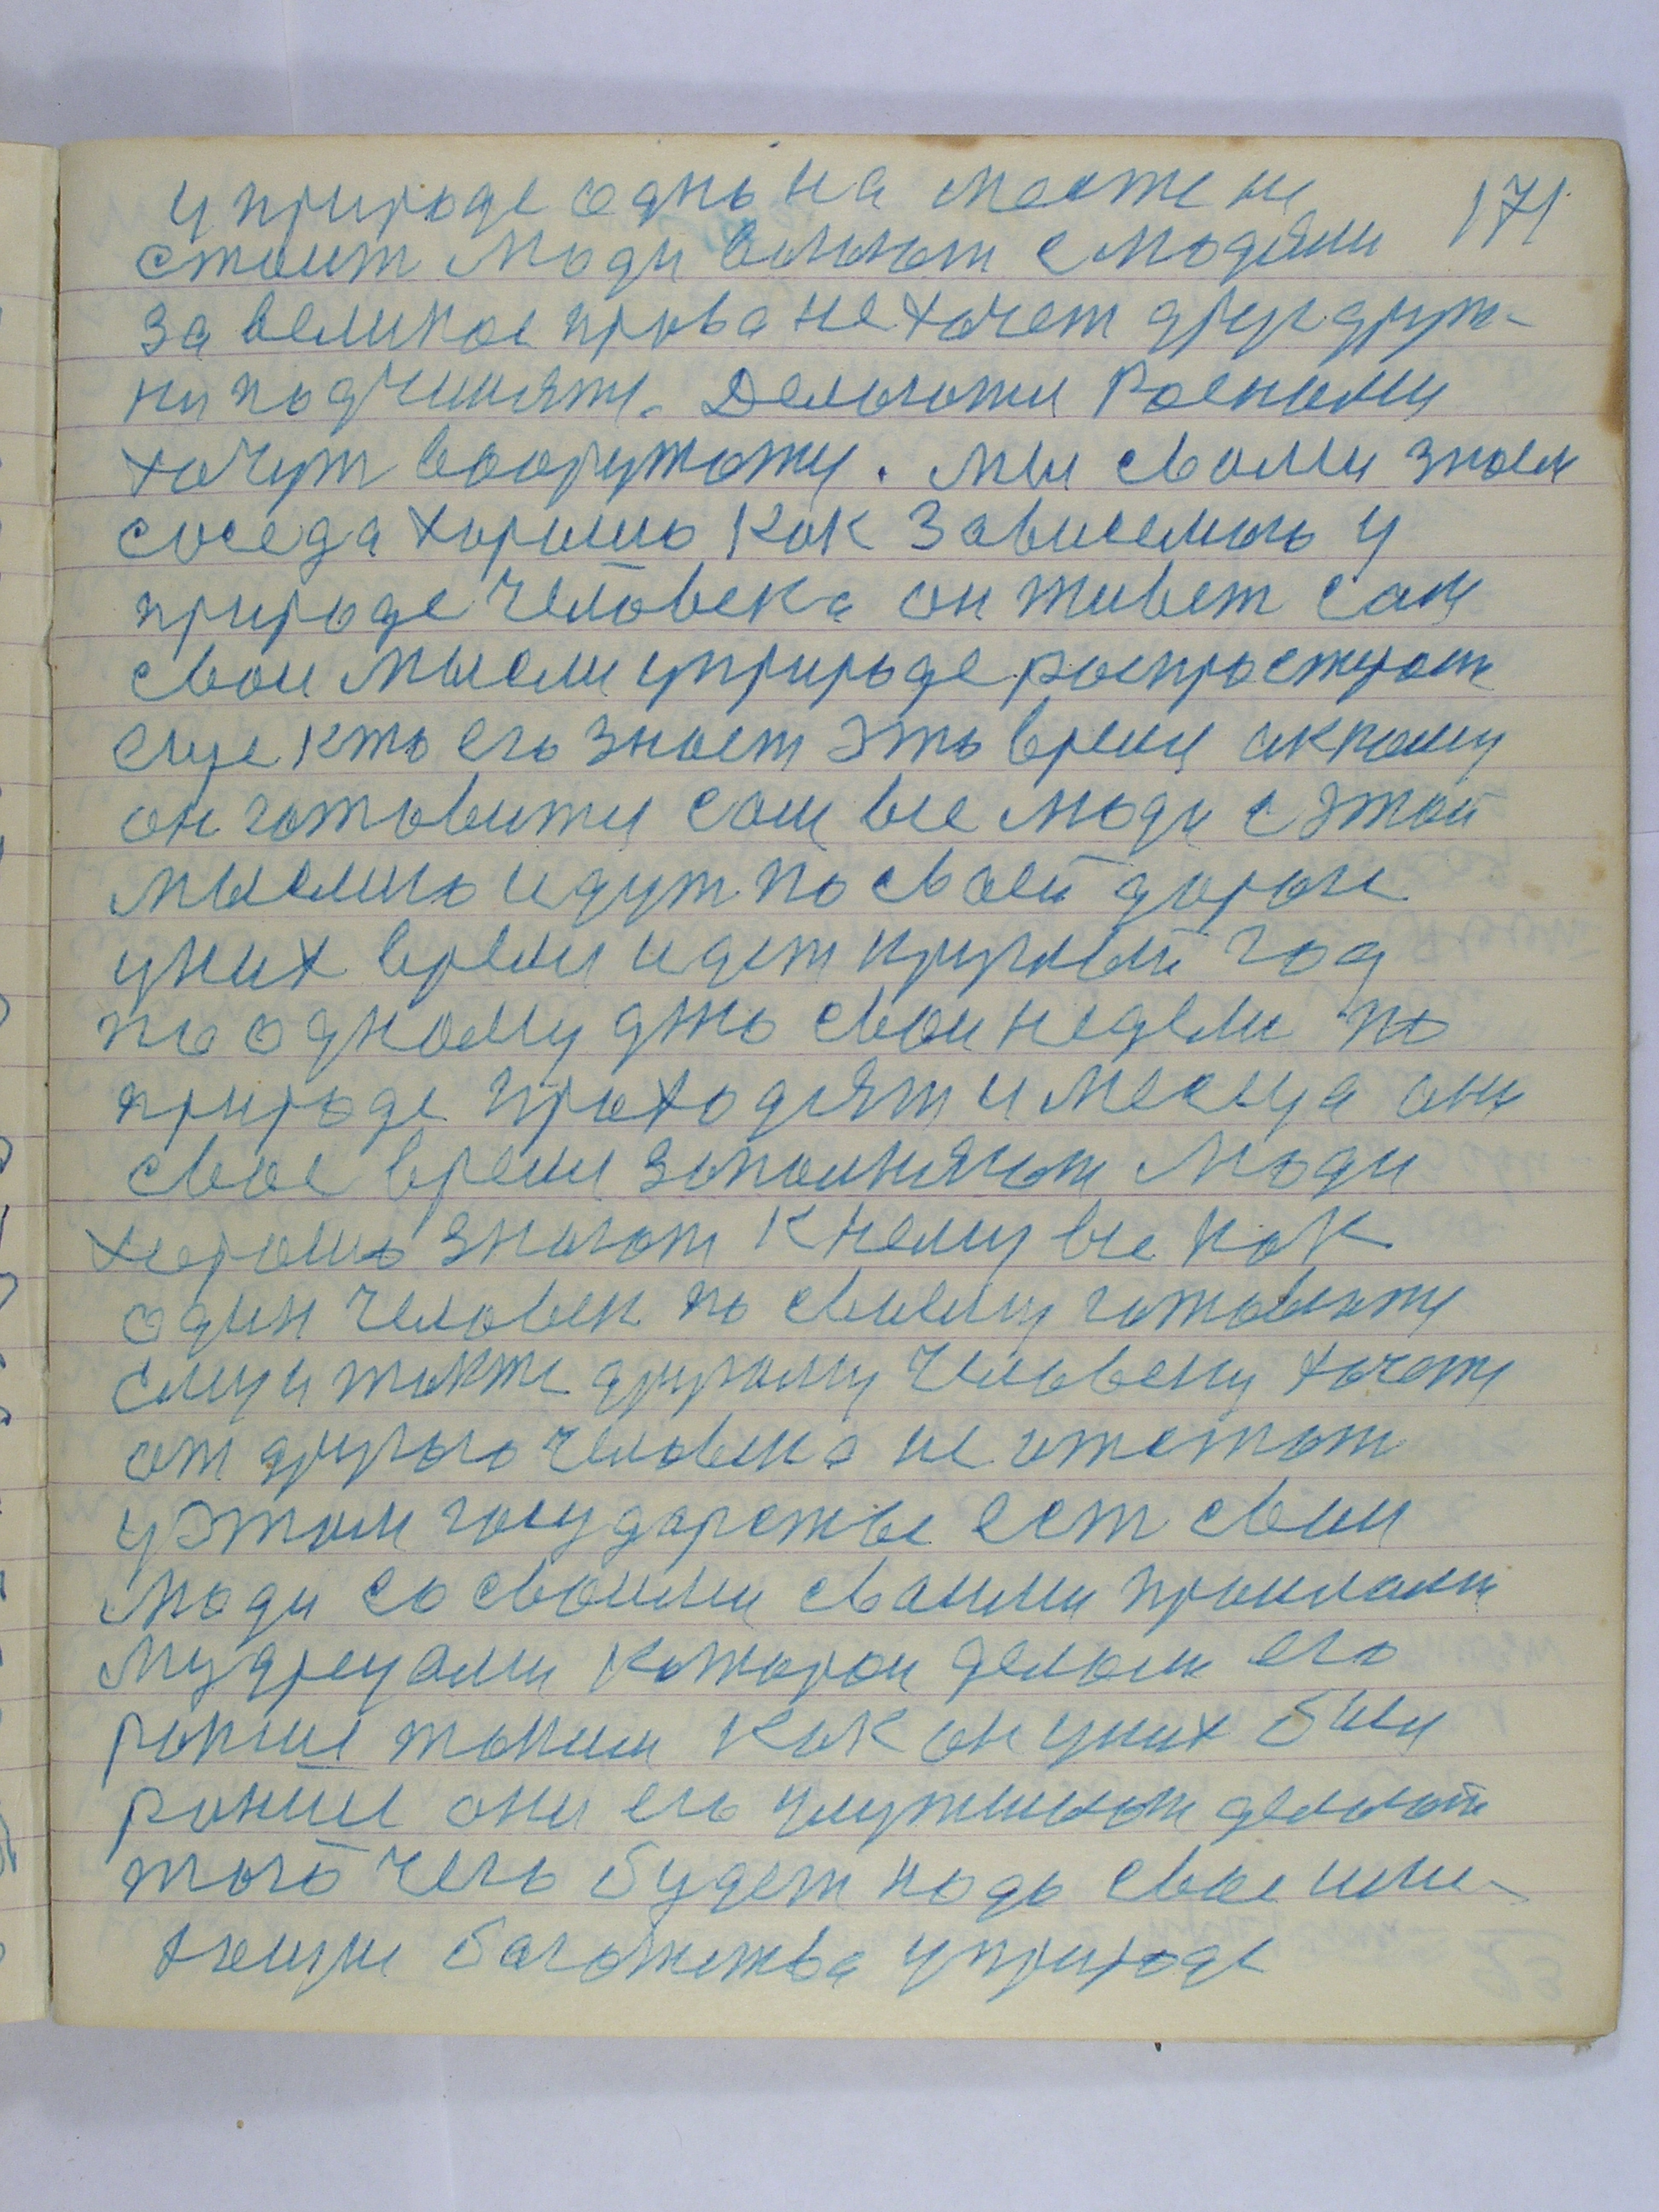 у природе одно на месте не 171
стоит люди воюют с людями
за великое право не хочет друг друж-
ки подчинятя. Делаются Роенами
хочут вооружатя. Мы с вами знаем
соседа хорошо как зависемаго у
природе человека он живет сам
свои мысли у природе роспростроет
еще кто его знает это время а к кому
он готовитя сам все люди с этой
мыслию идут по своей дороге
у них время идет круглый год
по одному дню свои недели по
природе проходят и месеца они
свое время заполняют люди
хорошо знают к нему все как
один человек по своему готовятя
ему и также другому человеку хочетя
от другого человека не отстают
у этом государстве ест свои
люди со своими своими
мудрецами которои делали его
ранше таким как он у них был
раншe они его делают
того чего будет надо свое
богатства у природе